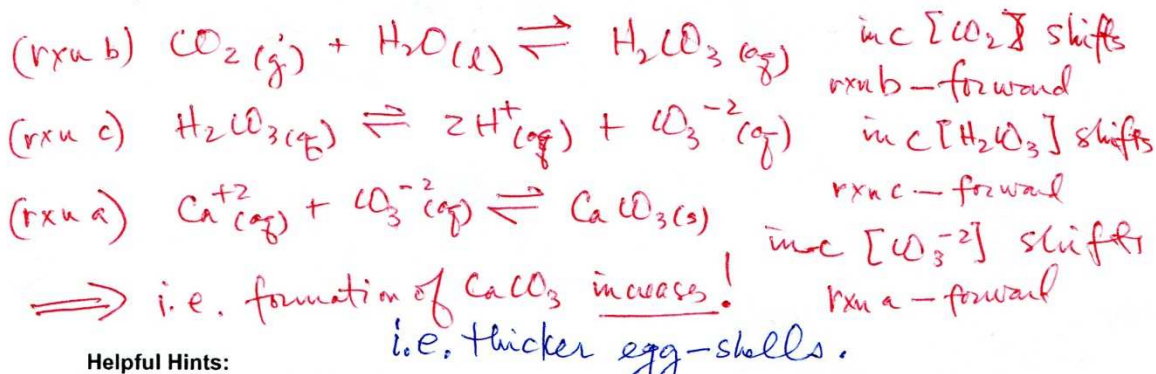 (rxn b) CO₂(g) + H₂O(l) ⇌ H₂CO₃(aq) inc [CO₂] shifts
rxn b – forward
(rxn c) H₂CO₃(aq) ⇌ 2H⁺(aq) + CO₃⁻²(aq) inc [H₂CO₃] shifts
rxn c – forward
(rxn a) Ca⁺²(aq) + CO₃⁻²(aq) ⇌ CaCO₃(s)
inc [CO₃⁻²] shifts
⟹ i.e. formation of CaCO₃ increases! rxn a – forward
i.e. thicker egg-shells.
Helpful Hints: